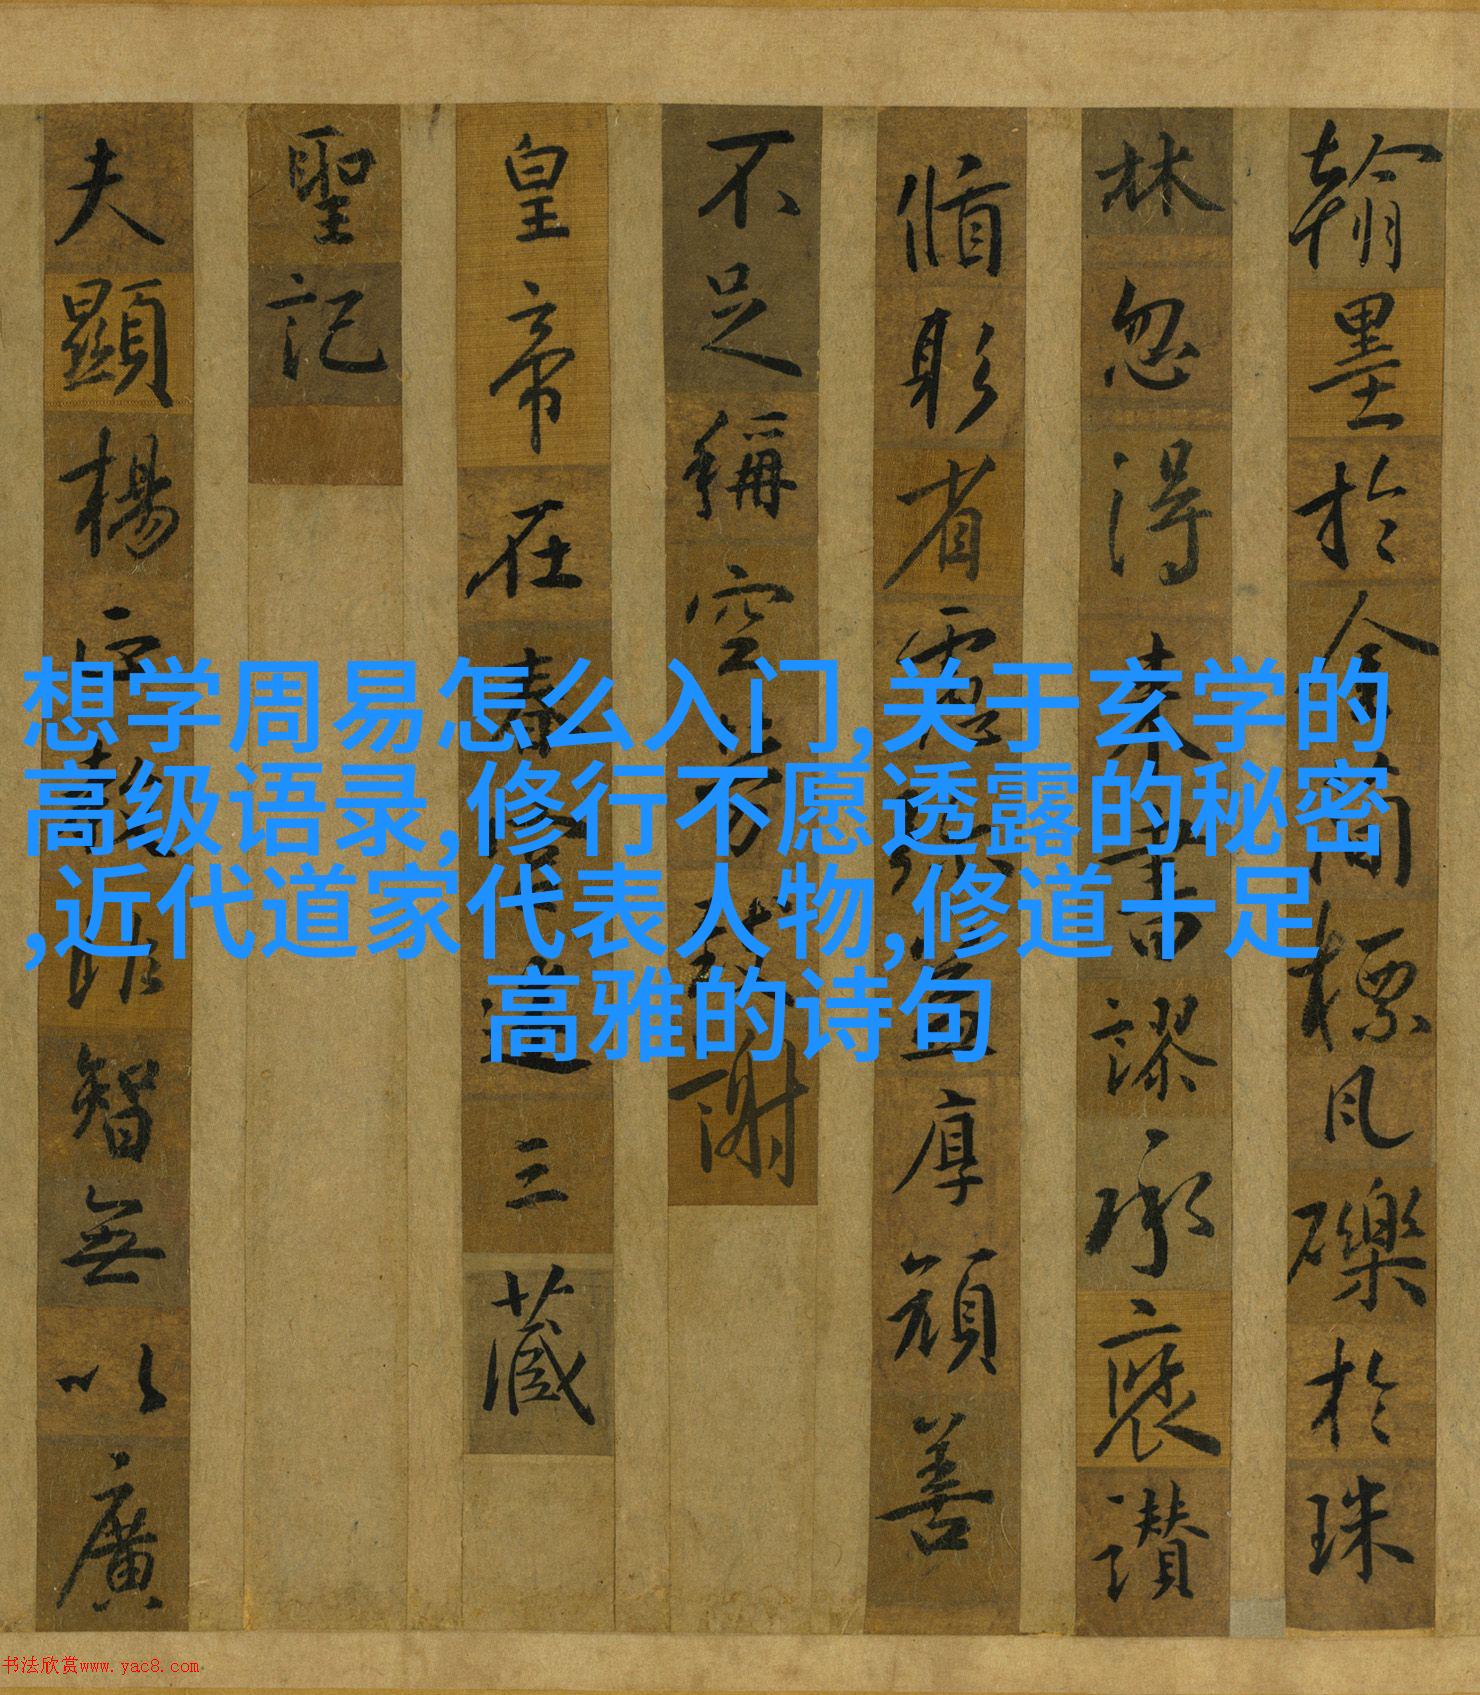 翰墨於金簡標瓦礫於珠
林忽得来書謬承褒讚
循躬省慮弥益厚顔善
不足稱空勞致謝
皇帝在春宮述三藏
聖記
夫顯楊正教非智無以廣
想学周易怎么入门,关于玄学的
高级语录,修行不愿透露的秘密
,近代道家代表人物,修道十足
高雅的诗句
书法欣赏www.yac8.com